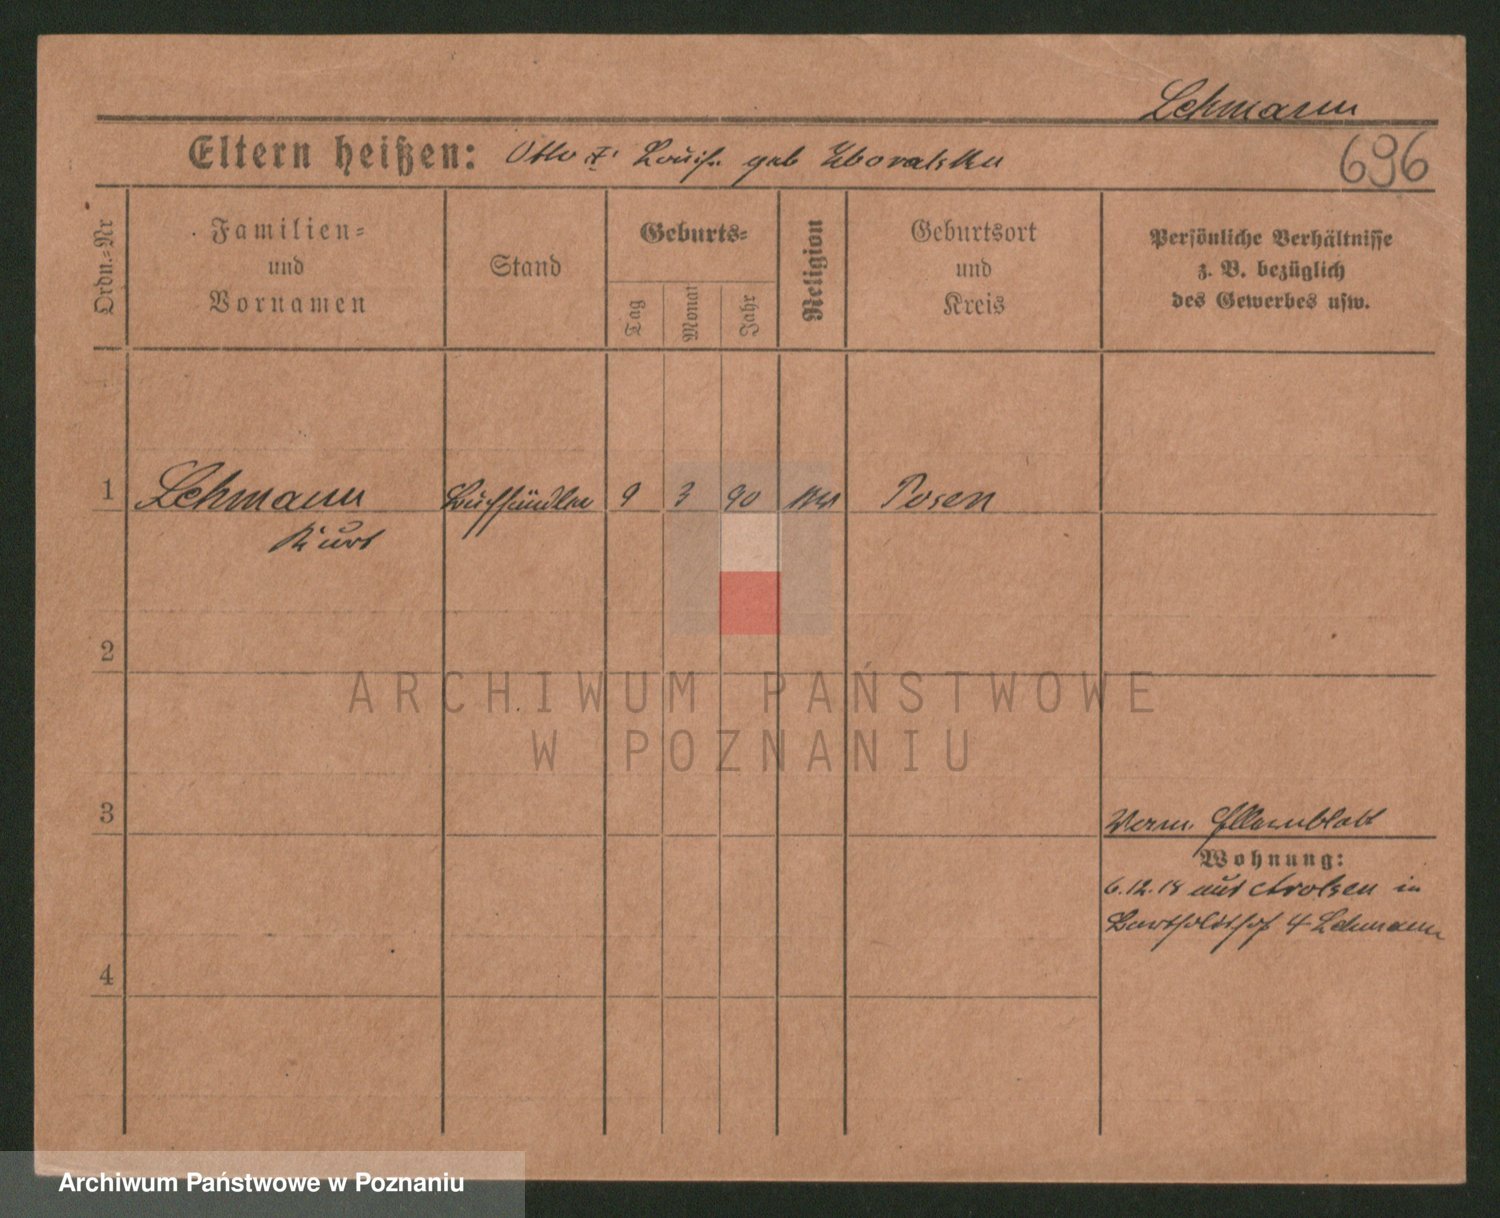 Lehmann
Eltern heißen: Otto u. Louise geb
696
Ordn.-Nr
Familien-
und
Vornamen
Stand
Geburts-
Tag
Monat
Jahr
Religion
Geburtsort
und
Kreis
Persönliche Verhältnisse
z. B. bezüglich
des Gewerbes usw.
1 Lehmann Buchhändler 9 3 90 Posen
Kurt
2
ARCHIWUM PAŃSTWOWE
W POZNANIU
3
Wohnung:
6.12.18 aus Arolsen in
4 Lehmann
4
Archiwum Państwowe w Poznaniu